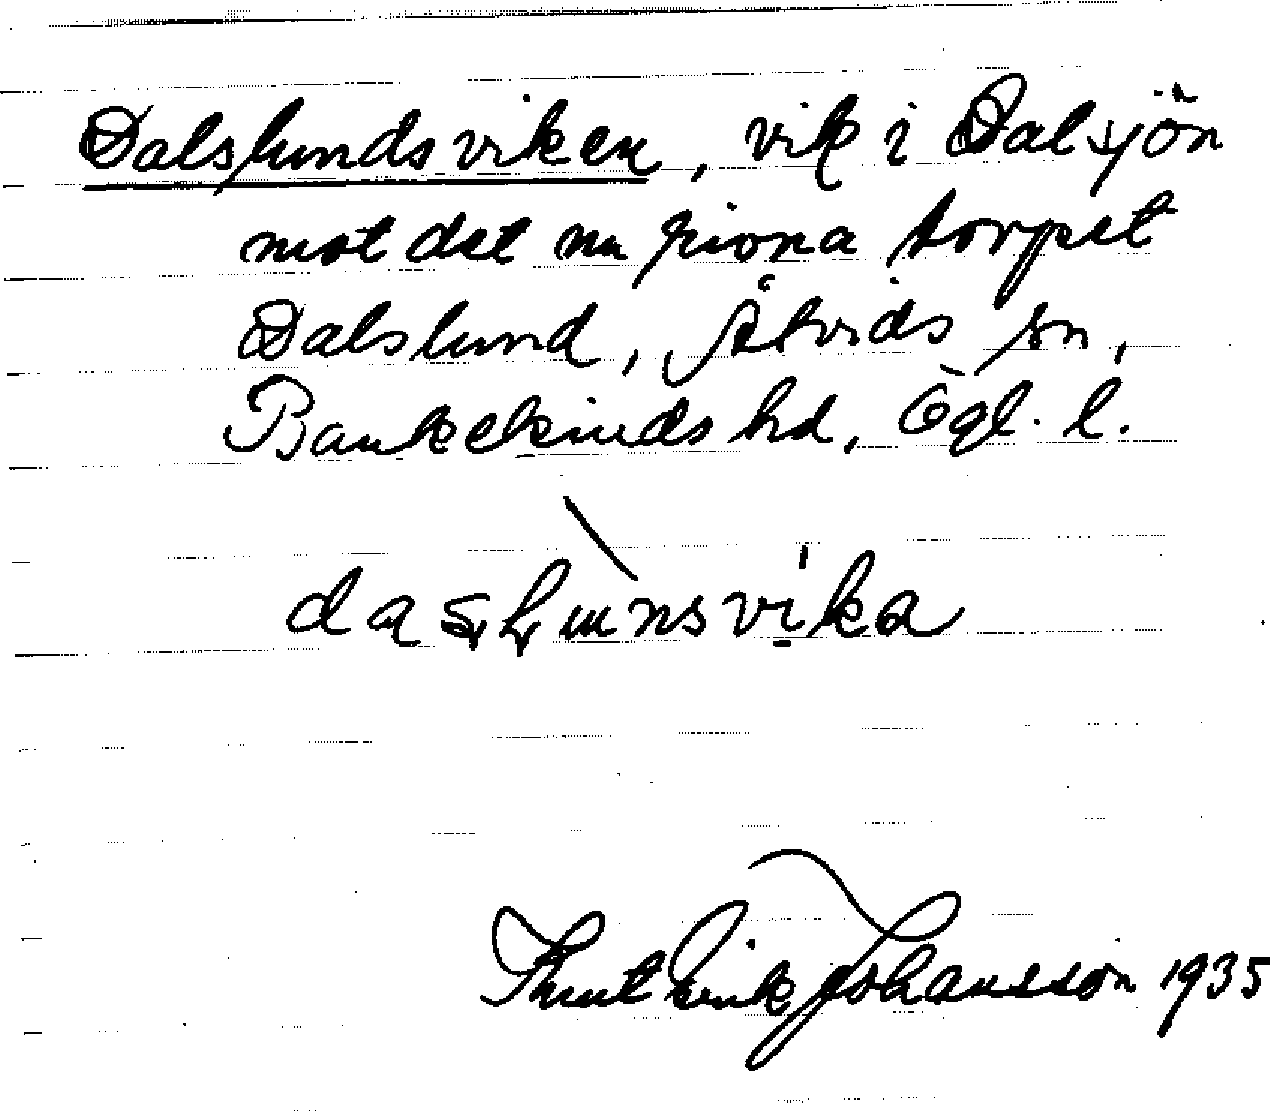 Dalslundsviken, vik i Dalsjön
mot det nu rivna torpet
Dalslund, Åtvids sn,
Bankekinds hd, Ögl. l.
Knut Erik Johansson 1935